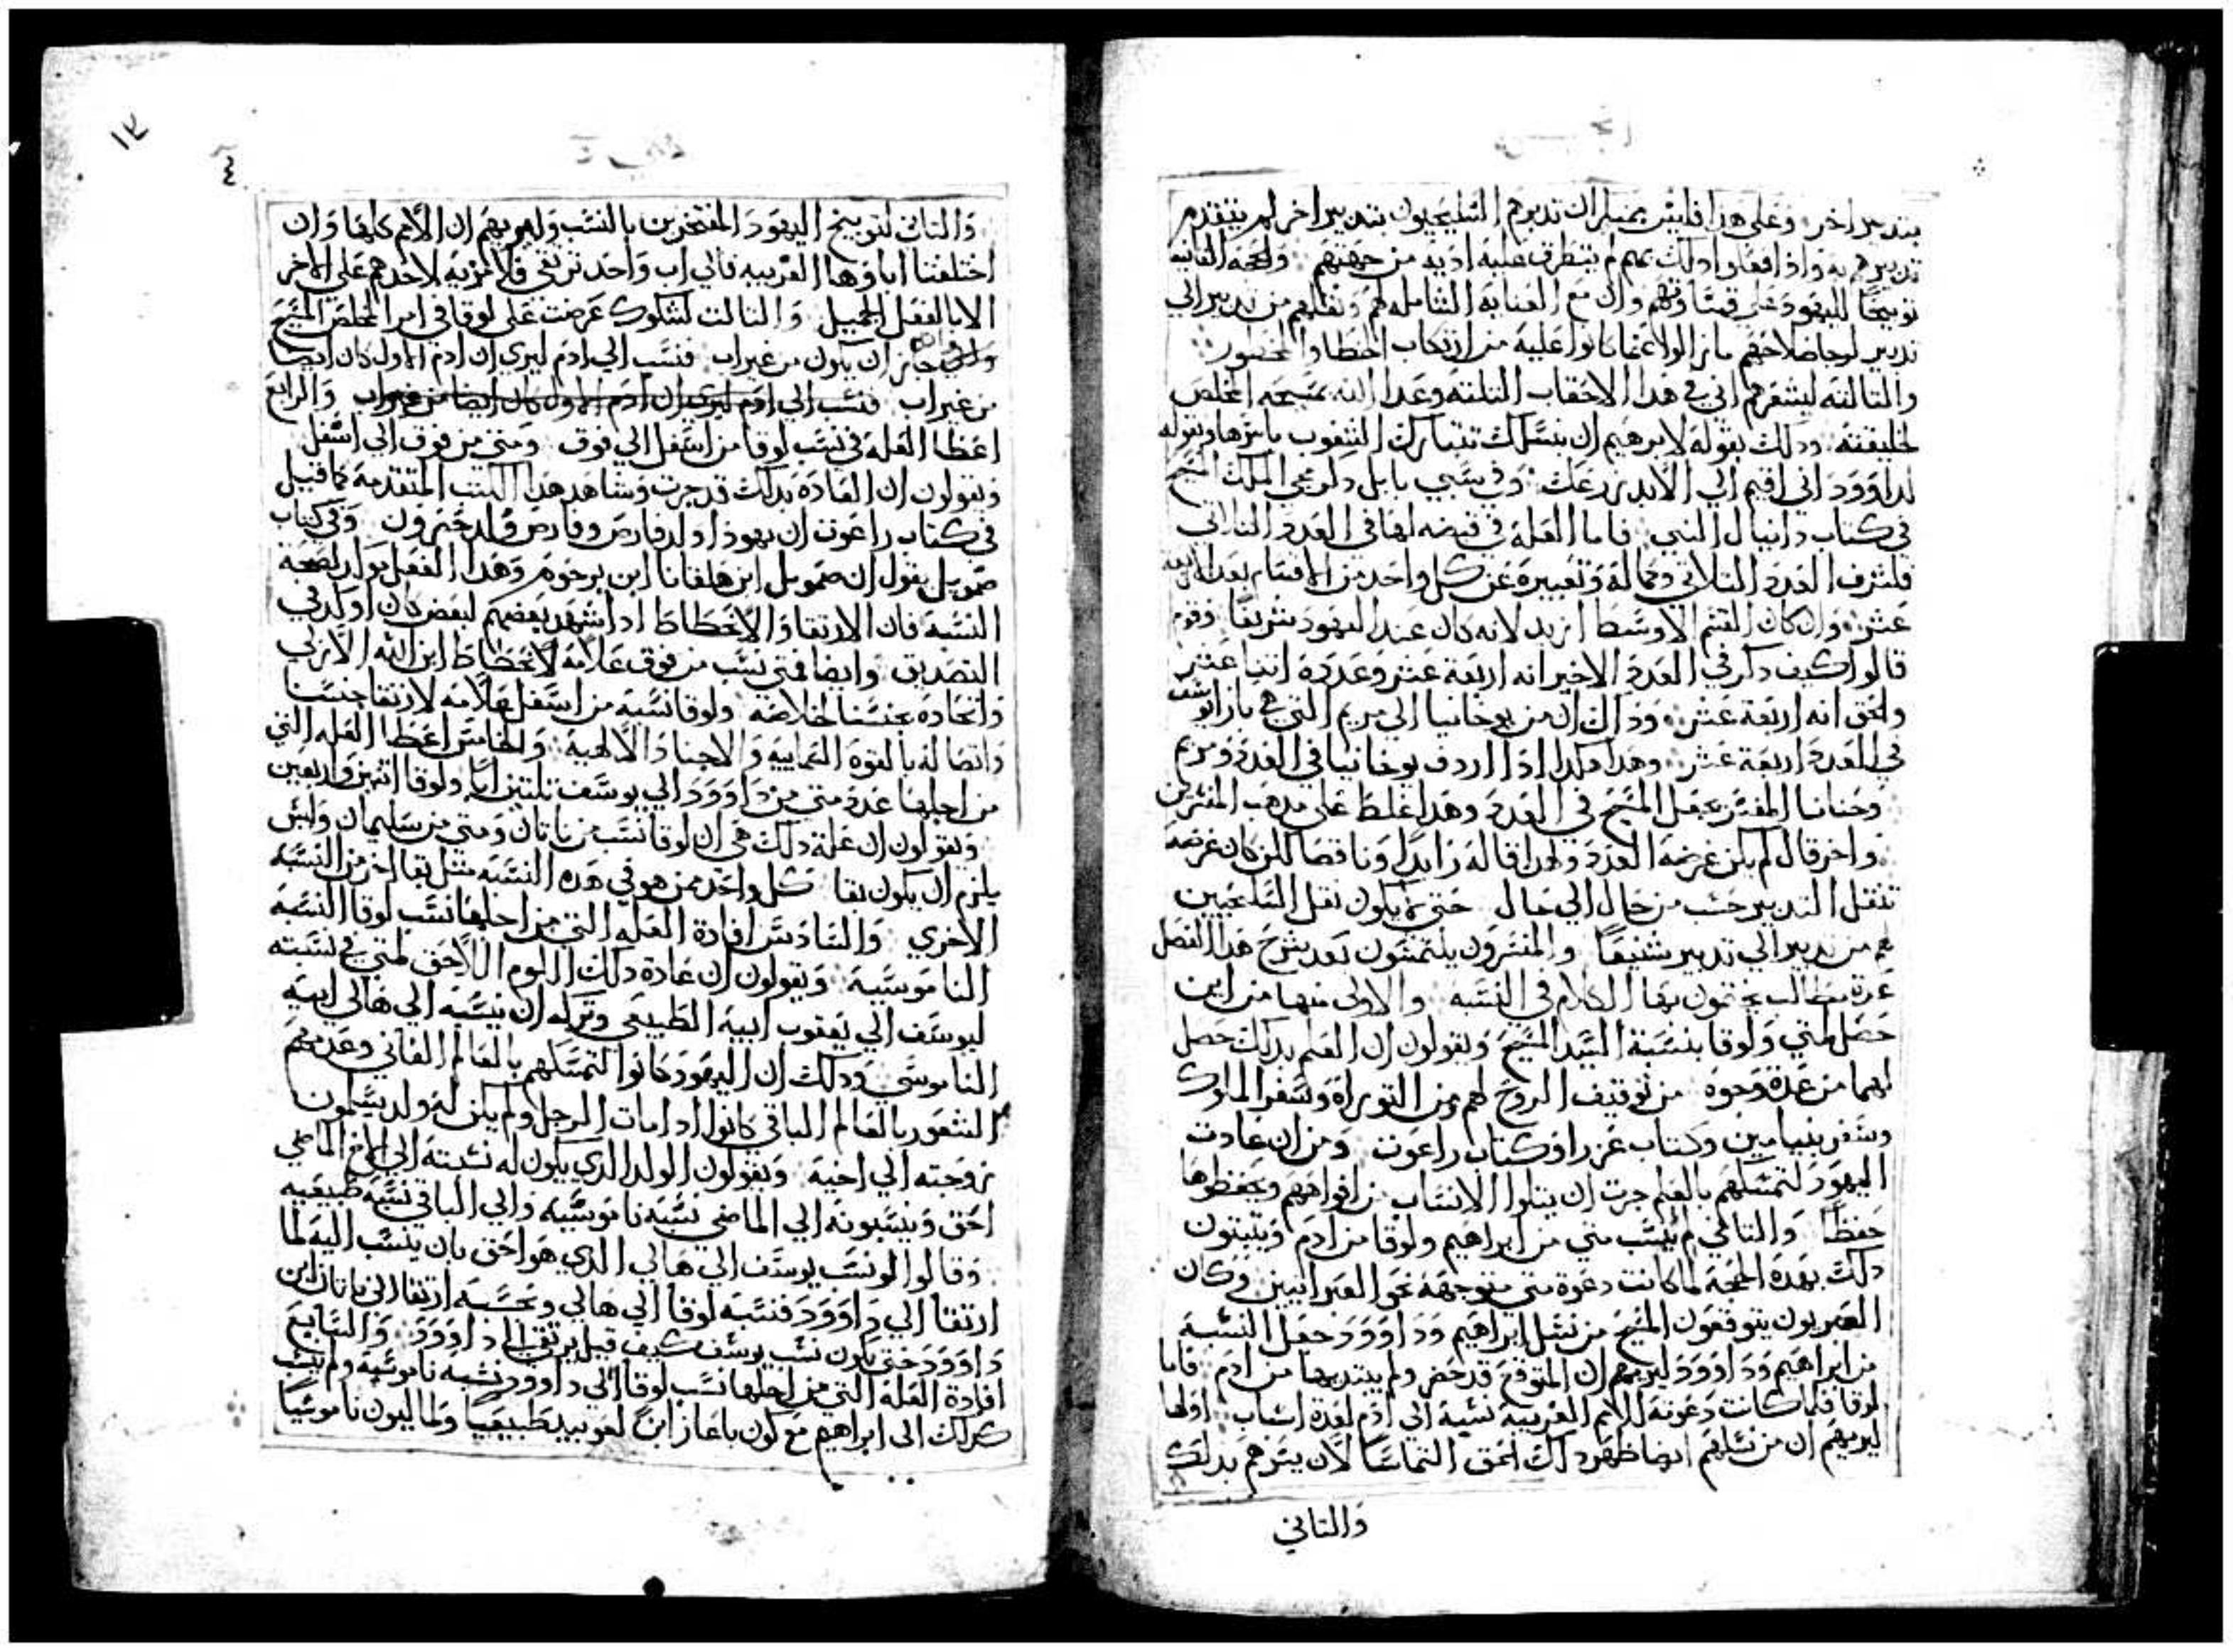 بتدبير اخر وعلى هذا فليس بمنكر ان تدبرهم السليحيون بتدبير اخر لم يتقدم
تدبيرهم به واذا فعلوا ذلك بهم لم يتطرق عليه اذيه من جهتهم والحجه الثانيه
توبيخا لليهود على قساوتهم وان مع العنايه الشامله لهم ونقلهم من تدبير الى
تدبير لرجا صلاحهم ما زالوا عما كانوا عليه من ارتكاب الخطا والمحضور
والثالثه ليشعرهم ان في هذا الاحقاب الثلثه وعد الله بمسيحه المخلص
لخليقته وذلك بقوله لابرهيم ان بنسلك تتبارك الشعوب باسرها وبقوله
لداوود اني اقيم الي الابد زرعك وفي سبي بابل ذكر مجي الملك المسيح
في كتاب دانيال النبي فاما العله في قبضه لها في العدد الثلاثي
فلشرف العدد الثلاثي وكماله وتعبيره عن كل واحد من الاقسام بعدد الاربعه
عشر وان كان القسم الاوسط ازيد لانه كان عند اليهود شريفا وقوم
قالوا كيف ذكر في العدد الاخير انه اربعة عشر وعدده اثنا عشر
والحق انه اربعة عشر وذاك ان من يوخانيا الى مريم التي هي بازا يوسف
في العدد اربعة عشر وهذا هكدا اذا اردف يوخانيا في العدد ومريم
وحنانا المفسر يجعل المسيح في العدد وهذا غلط على مدهب المفسرين
واخر قال لم يكن غرضه العدد ولهدا قاله زايدا وناقصا لكن كان غرضه
تنقل التدبير حسب من حال الى حال حتى لا يكون نقل السليحيين
لهم من تدبير الى تدبير شنيعا والمفسرون يلتمسون بعد شرح هذا الفصل
عدة مطالب يختمون بها الكلام في النسبه والاولى منها من اين
حصل لمتي ولوقا بنسبة السيد المسيح ويقولون ان العلم بذلك حصل
لهما من عدة وجوه من توقيف الروح لهم ومن التوراة وسفر الملوك
وسفر بنيامين وكتاب عزرا وكتاب راعوت ومن ان عادت
اليهود لتمسكهم بالعلم جرت ان يتلوا الانساب من افواههم ويحفظوها
حفظا والثاني لم نسب متى من ابراهيم ولوقا من ادم ويثبتون
ذلك بهده الحجه لما كانت دعوة متى متوجهة نحو العبرانيين وكان
العبريون يتوقعون المسيح من نسل ابراهيم وداوود جعل النسبه
من ابراهيم وداوود ليريهم ان المتوقع قد حضر ولم يبتدي بها من ادم فاما
لوقا فلما كانت دعوته للامم الغريبه نسبه الى ادم لعدة اسباب اولها
ليريهم ان من نسلهم ايضا ظهر ذلك الحق التماسا لان يسرهم بذلك
والتاني
١٢
٤
والثاني لتوبيخ اليهود المفتخرين بالنسب وليريهم ان الامم كلها وان
اختلفت اباوها القريبه فالي اب واحد ترتقي فلا مزيه لاحدهم على الاخر
الا بالفعل الجميل والثالث لشكوك عرضت على لوقا في امر المخلص المسيح
جايز ان يكون من غير اب فنسب الي ادم ليري ان ادم الاول كان ايضا
من غير اب فنسب الي ادم ليري ان ادم الاول كان ايضا من غير اب والرابع
اعطا العله في نسب لوقا من اسفل الي فوق ومتى من فوق الى اسفل
ويقولون ان العاده بذلك قد جرت وشاهد هدا الكتب المتقدمه كما قيل
في كتاب راعوت ان يهودا اولد فارص وفارص ولد حصرون وفي كتاب
صمويل يقول ان صمويل ابن هلقانا ابن يرحوم وهدا الفعل لصحة
النسبه فان الارتقا والانحطاط اذا شهد بعضهم لبعض كان اوكد في
التصديق وايضا فمتى نسب من فوق علامة لانحطاط ابن الله الازلي
واتحاده بجنسنا لخلاصه ولوقا نسبه من اسفل علامه لارتقا جنسنا
واتصاله بالقوة السماييه والاجناد الالهيه والخامس اعطا العله التي
من اجلها عدد متى من داوود الي يوسف ثلثين ابا ولوقا اثنين واربعين
ويقولون ان علة ذلك هي ان لوقا نسب من ناثان ومتى من سليمان وليس
يلزم ان يكون بقا كل واحد ممن هو في هذه النسبه مثل بقا اخر من النسبه
الاخري والسادس افادة العله التي من اجلها نسب لوقا النسبه
الناموسيه ويقولون ان عادة ذلك اليوم اللاحق لمتي في نسبته
ليوسف الي يعقوب ابيه الطبيعي وتركه ان ينسبه الي هالي ابيه
الناموسي وذلك ان اليهود كانوا لتمسكهم بالعالم الفاني وعدمهم
الشعور بالعالم الباقي كانوا اذا مات الرجل ولم يكن له ولد يسلمون
زوجته الي اخيه ويقولون الولد الذي يكون له نسبته الى الاخ الماضي
احق وينسبونه الي الماضي نسبه ناموسيه والي الباقي نسبه طبيعيه
وقالوا لو نسب يوسف الي هالي الذي هو احق بان ينسب اليه لما
ارتقا الي داوود فنسبه لوقا الي هالي وبحسبه ارتقا الى ناثان ابن
داوود حتى يكون نسب يوسف كيف قيل يرتقي الى داوود والسابع
افادة العله التي من اجلها نسب لوقا الي داوود نسبه ناموسيه ولم ينسب
كذلك الى ابراهيم مع كون باعاز ابن لعوبيد طبيعيا ولمالبون ناموسيا